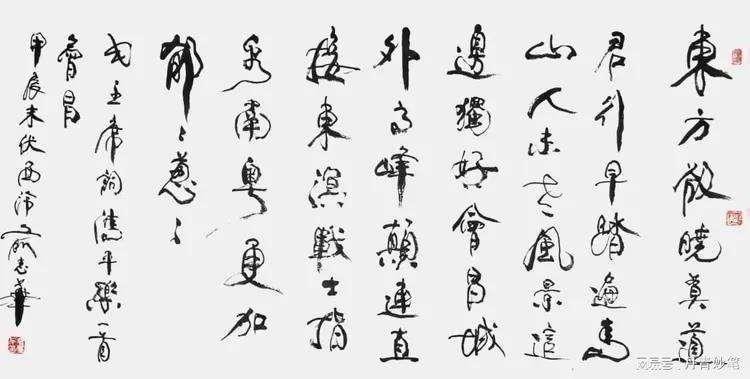 東方欲曉莫道
君行早踏遍青
山人未老風景這
邊獨好會昌城
外高峰顛連直
接東溟戰士指
看南粵更加
郁々蔥々
毛主席詞清平樂一首
會昌
甲辰末伏西志華
丹青妙笔